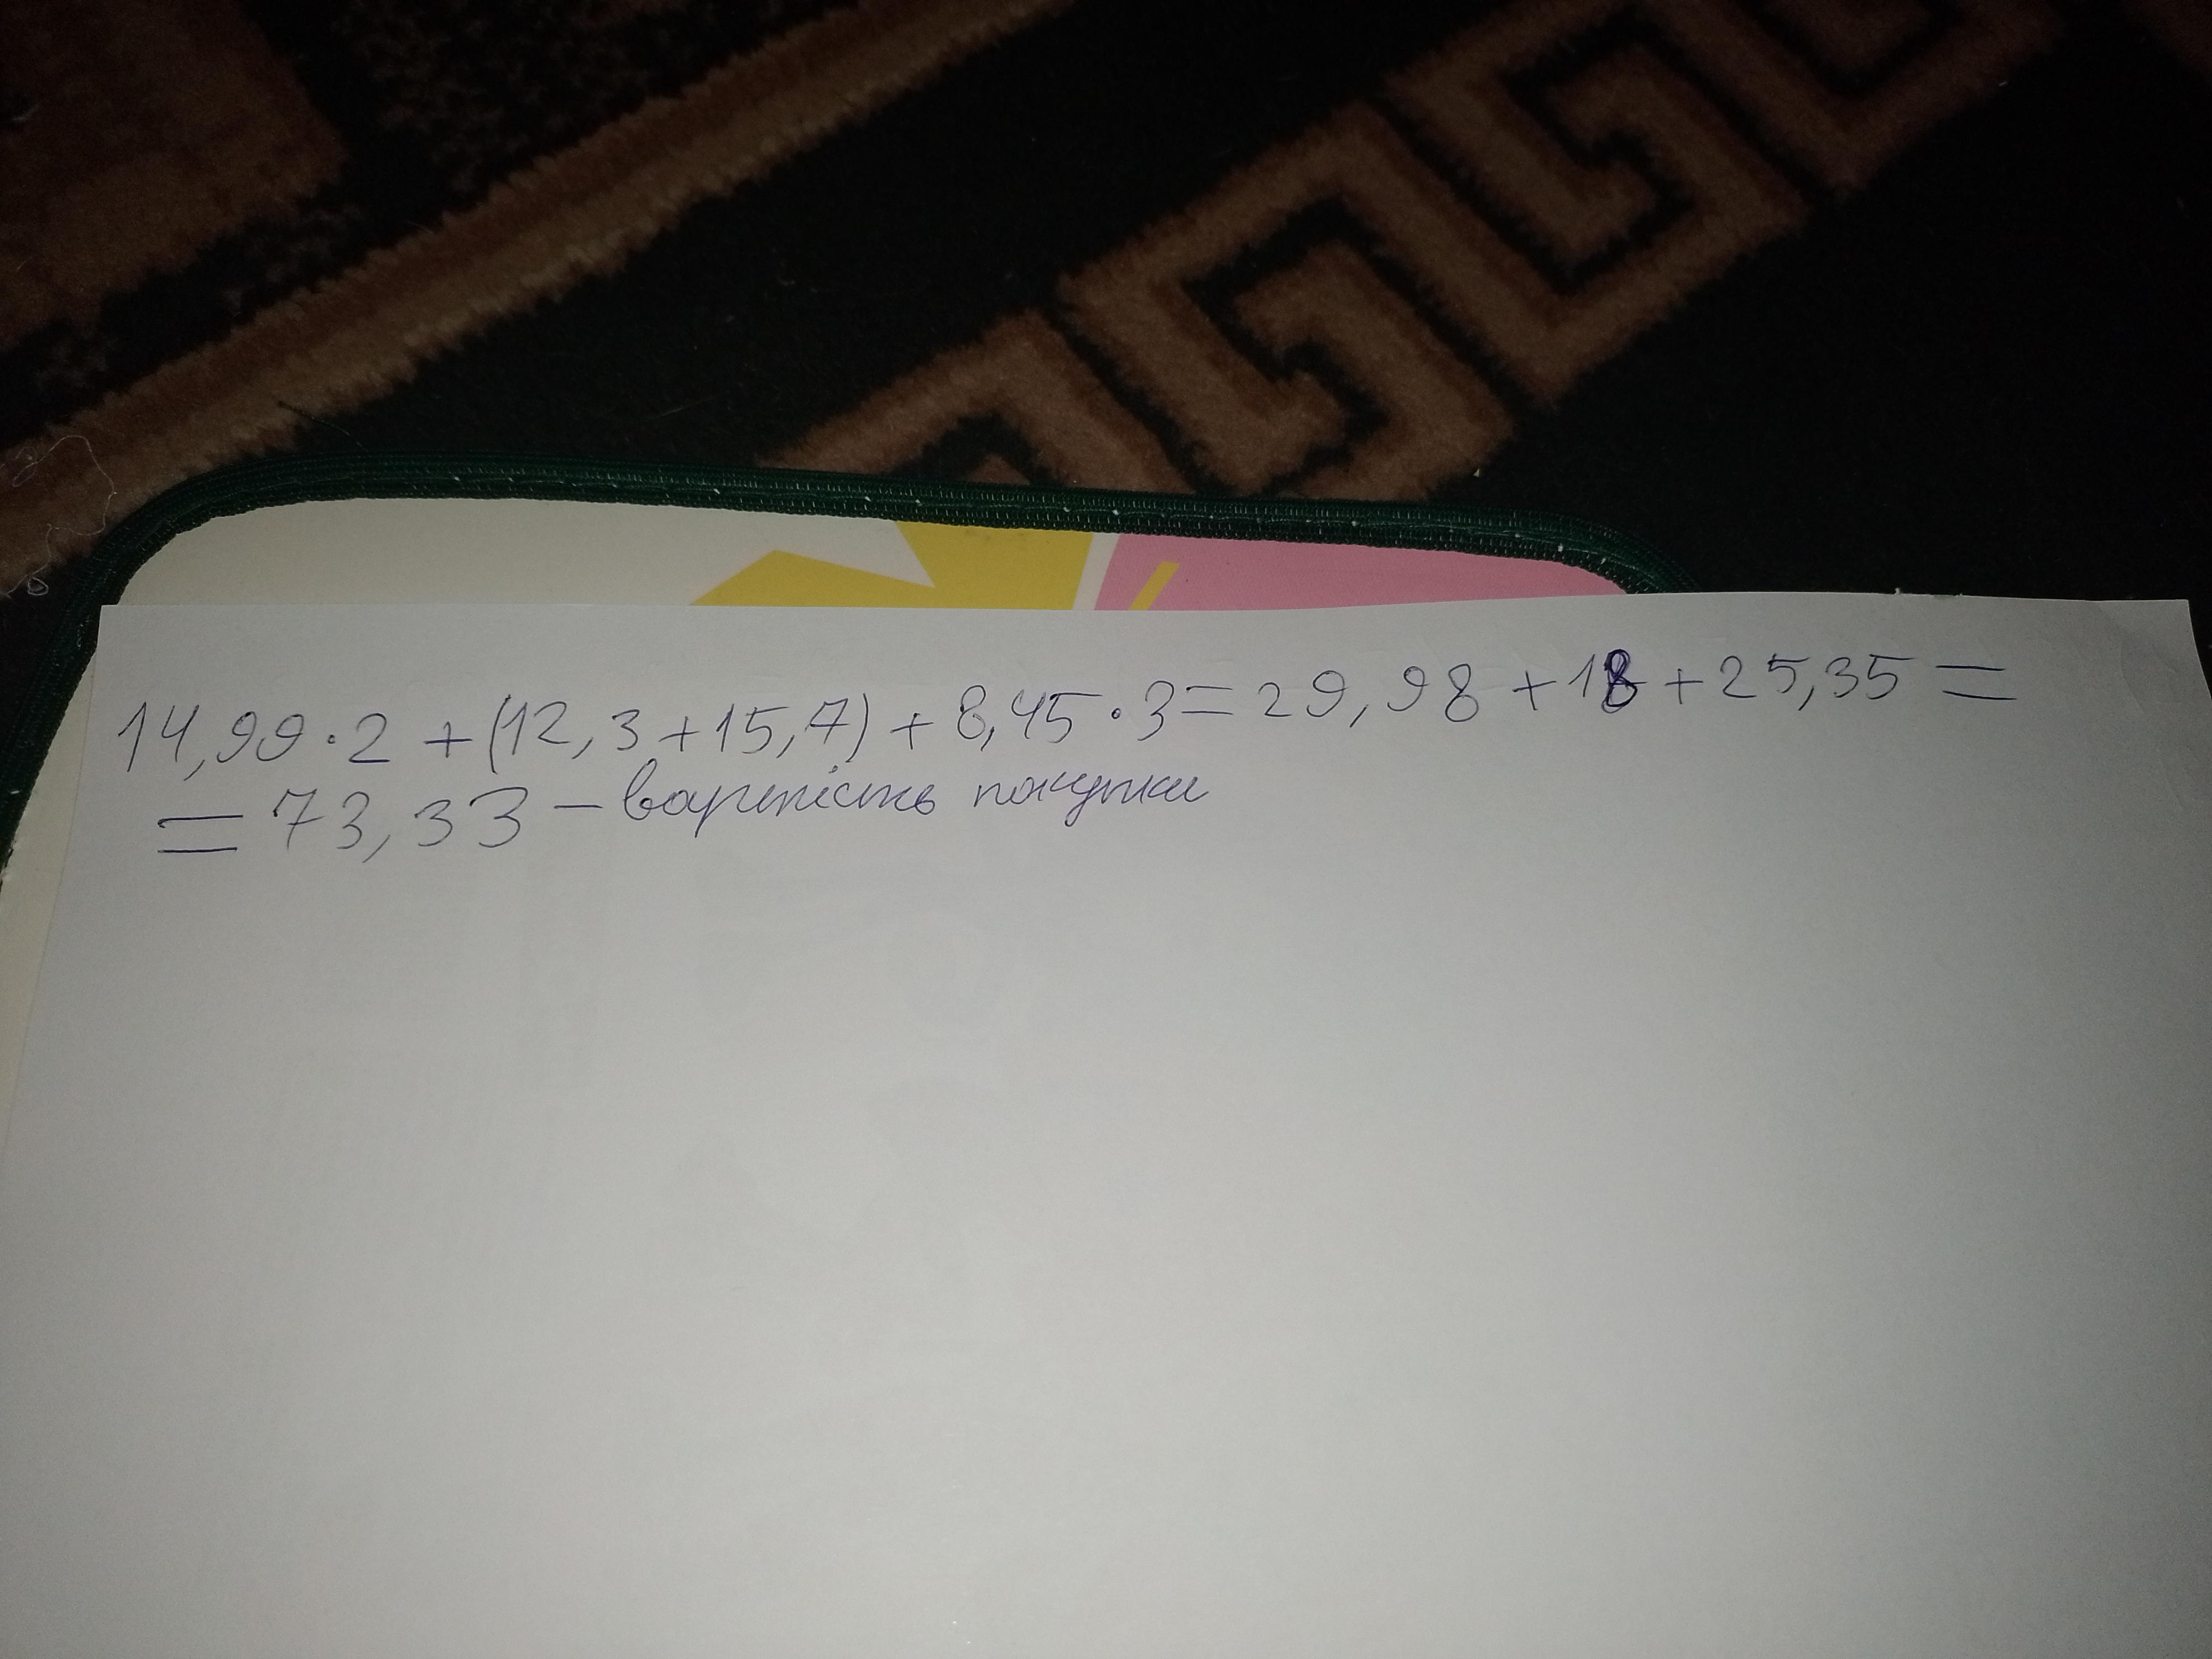 14,99·2 +(12,3+15,7)+8,45·3=29,98+18+25,35=
=73,33-вартість покупки